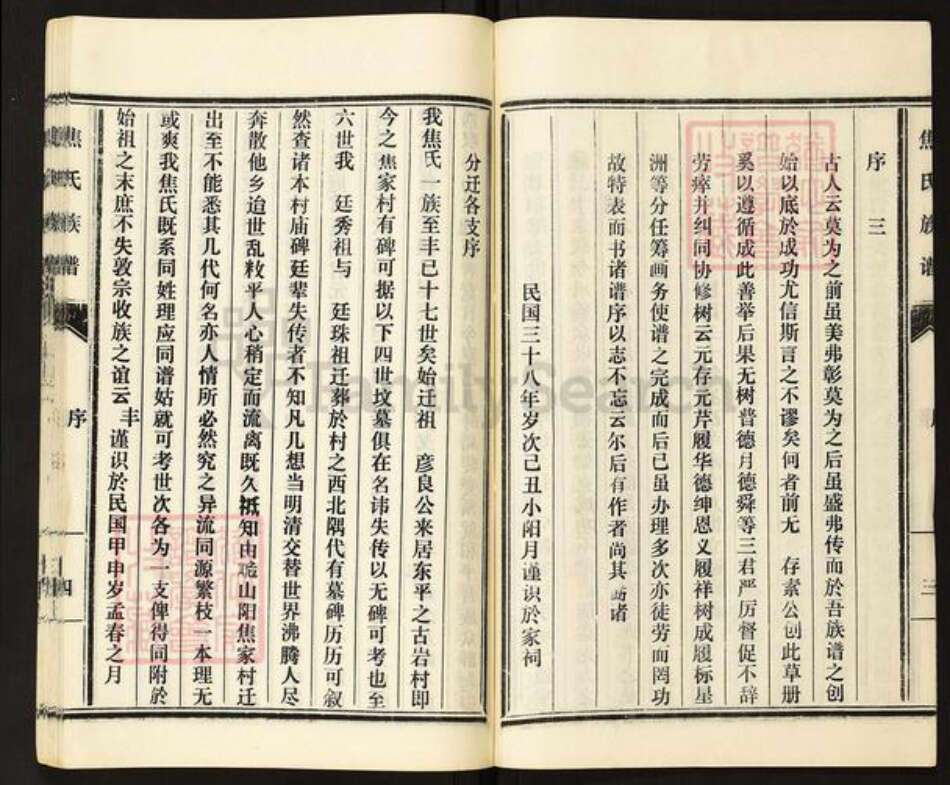 序三
古人云莫为之前虽美弗彰莫为之后虽盛弗传而於吾族谱之创
始以底於成功尤信斯言之不谬矣何者前无 存素公创此草册
奚以遵循成此善举后果无树普德月德舜等三君严厉督促不辞
劳瘁并纠同协修树云元存元芹履华德绅恩义履祥树成履标星
洲等分任筹画务使谱之完成而后已虽办理多次亦徒劳而罔功
故特表而书诸谱序以志不忘云尔后有作者尚其 诸
民国三十八年岁次己丑小阳月谨识於家祠
焦氏族谱
序
三
分迁各支序
我焦氏一族至丰已十七世矣始迁祖 彦良公来居东平之古岩村即
今之焦家村有碑可据以下四世坟墓俱在名讳失传以无碑可考也至
六世我 廷秀祖与 廷珠祖迁葬於村之西北隅代有墓碑历历可叙
然查诸本村庙碑廷辈失传者不知凡几想当明清交替世界沸腾人尽
奔散他乡迨世乱敉平人心稍定而流离既久祗知由 山阳焦家村迁
出至不能悉其几代何名亦人情所必然究之异流同源繁枝一本理无
或爽我焦氏既系同姓理应同谱姑就可考世次各为一支俾得同附於
始祖之末庶不失敦宗收族之谊云 丰 谨识於民国甲申岁孟春之月
焦氏族谱
序
四
FamilySearch